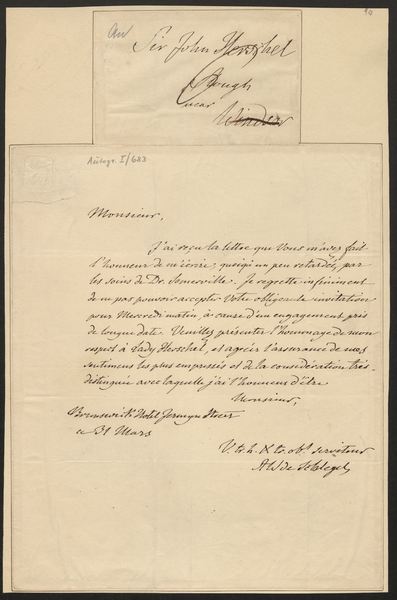 An
Sir John Herschel
Slough
near
Windsor
Autogr. I/683
Monsieur,
J'ai reçu la lettre que Vous m'avez fait
l'honneur de m'écrire, quoiqu'un peu retardée, par
les soins de Dr. Somerville. Je regrette infiniment
de ne pas pouvoir accepter Votre obligeante invitation
pour Mercredi matin, à cause d'un engagement pris
de longue date. Veuillez présenter l'hommage de mon
respect à Lady Herschel, et agréer l'assurance de mes
sentimens les plus empressés et de la considération très-
distinguée avec laquelle j'ai l'honneur d'être
Monsieur,
Brunswick Hotel Jermyn Street
ce 31 Mars
V. tr. h. & tr. ob. serviteur
AW de Schlegel